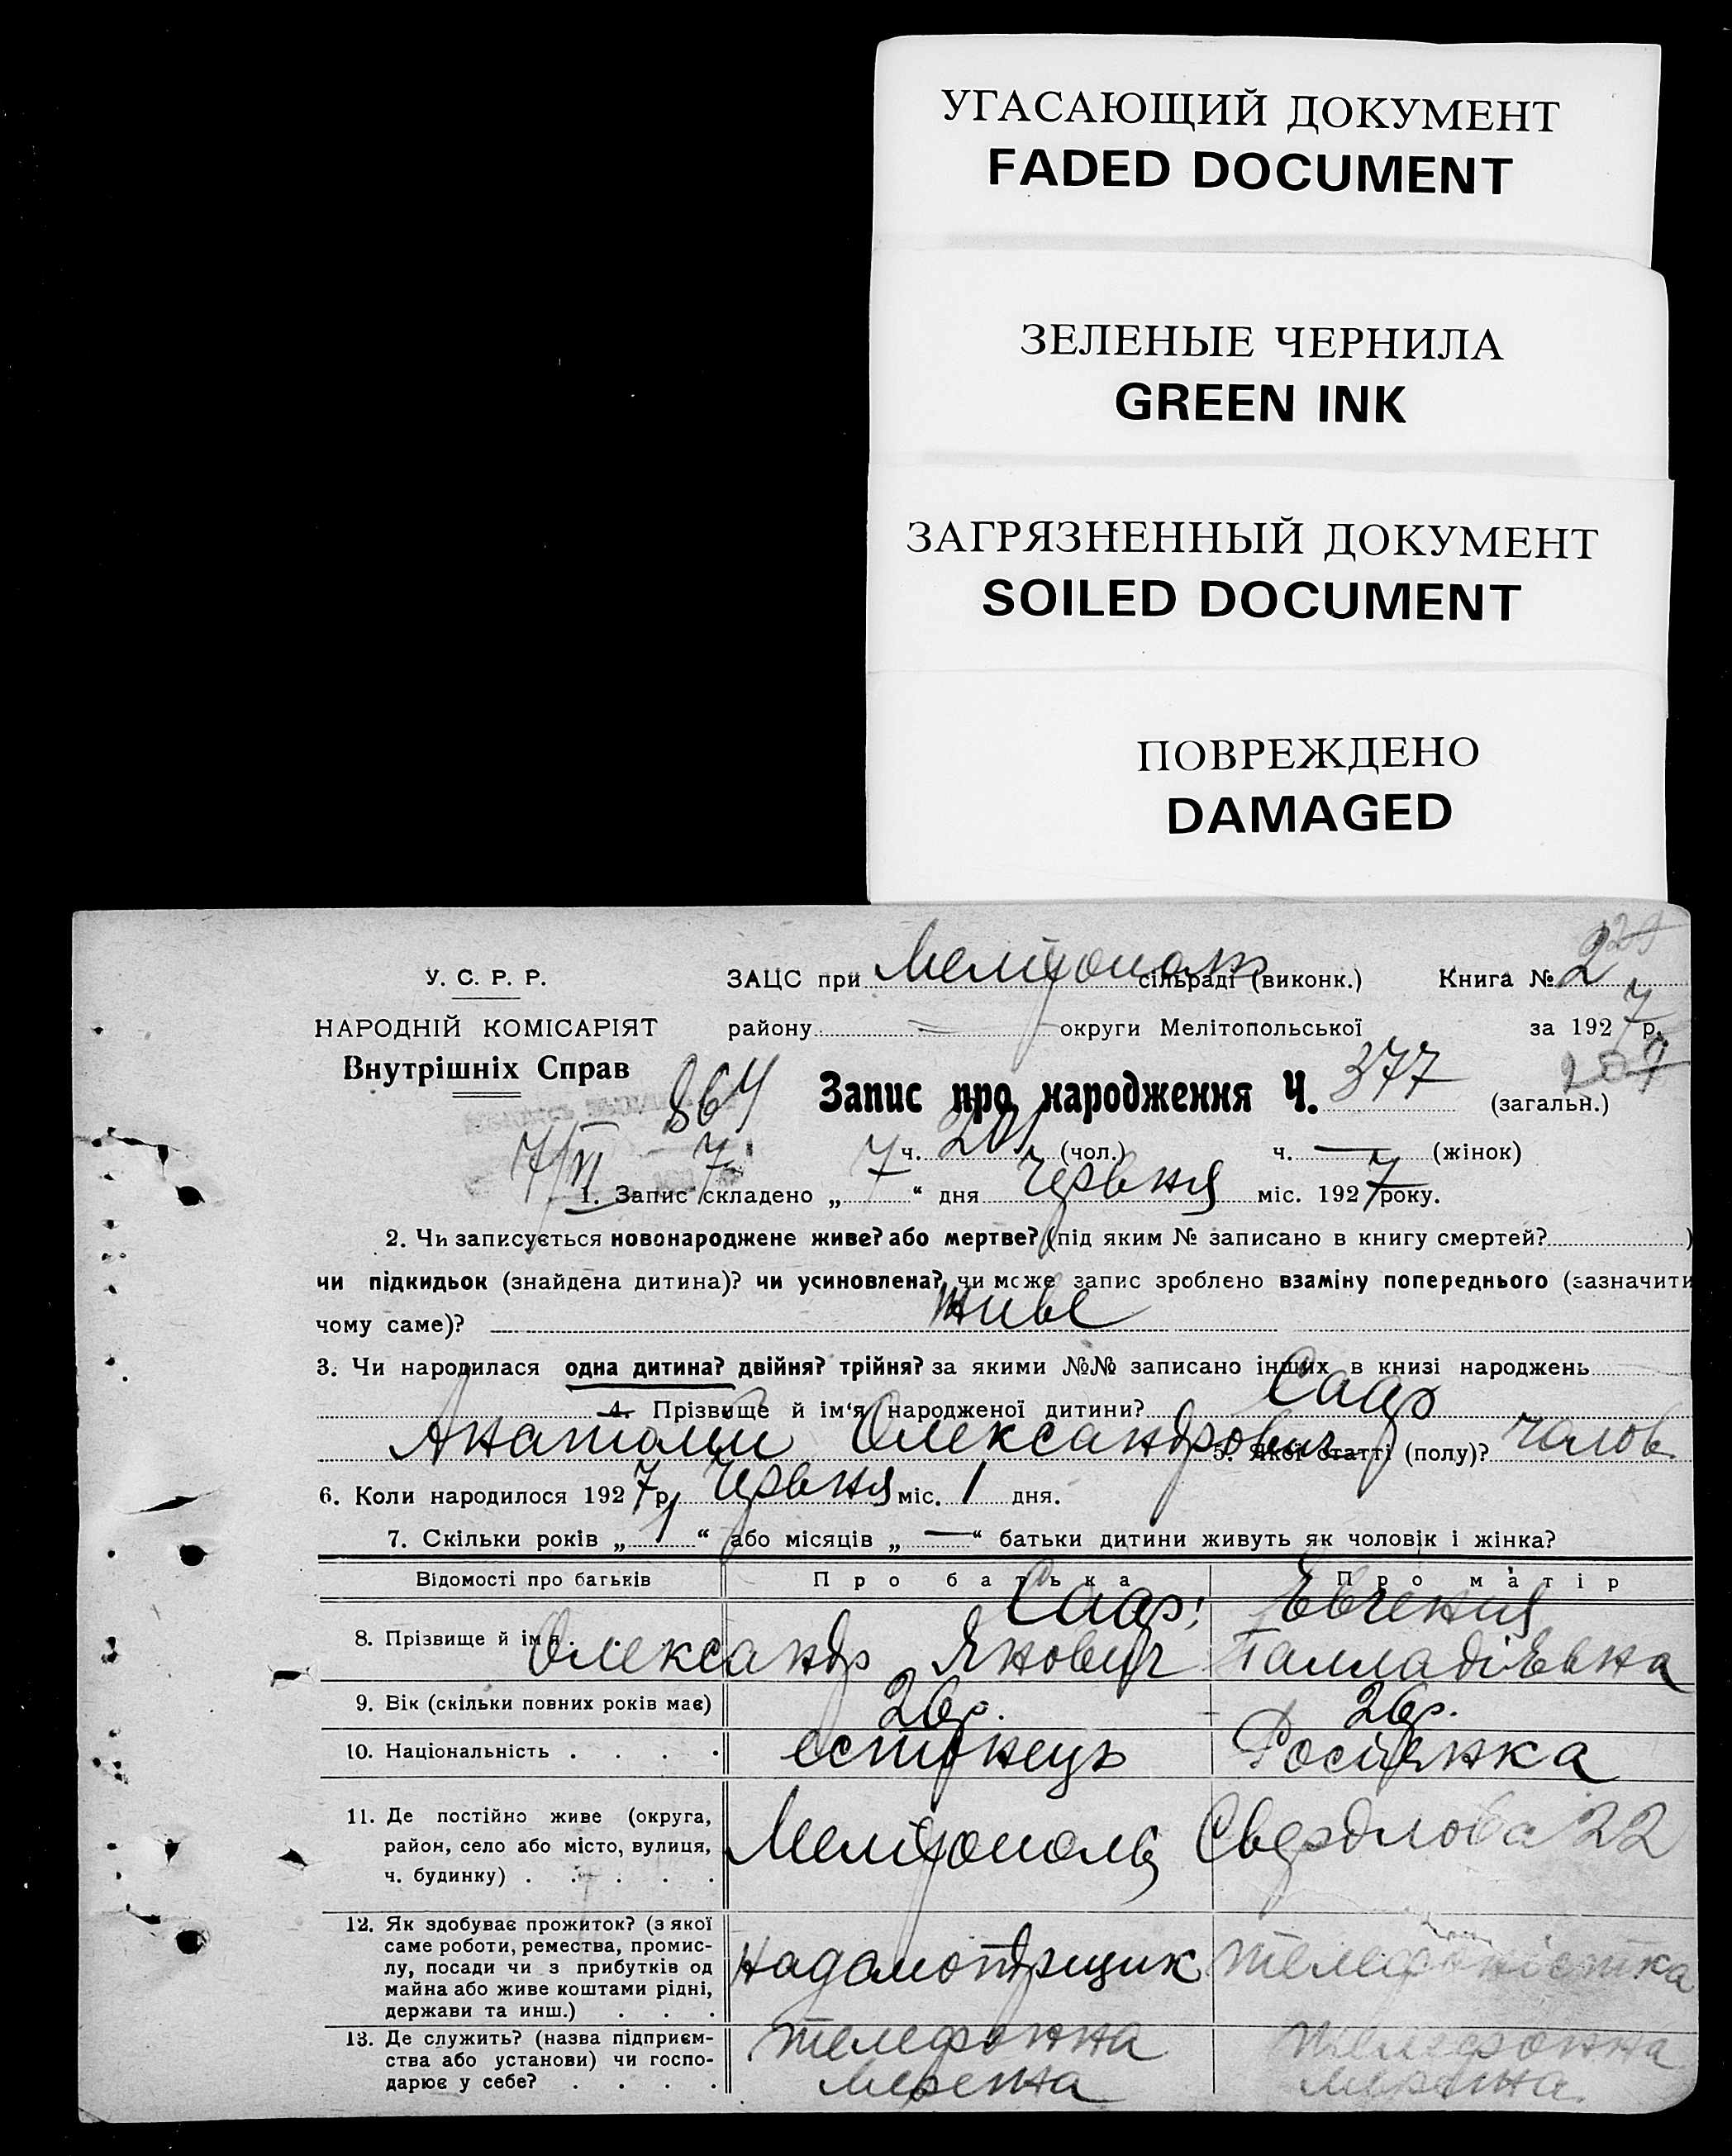 УГАСАЮЩИЙ ДОКУМЕНТ
FADED DOCUMENT
ЗЕЛЕНЫЕ ЧЕРНИЛА
GREEN INK
ЗАГРЯЗНЕННЫЙ ДОКУМЕНТ
SOILED DOCUMENT
ПОВРЕЖДЕНО
DAMAGED
У. С. Р. Р.
НАРОДНІЙ КОМІСАРІЯТ
Внутрішніх Справ
ЗАЦС при Мелітополь сільраді (виконк.) Книга № 2
району округи Мелітопольської за 1927 р.
864
Запис про народження Ч. 377 (загальн.) 207
7/VI 7 ч. 201 (чол.) ч. — (жінок)
1. Запис складено „ 7 “ дня Червня міс. 1927 року.
2. Чи записується новонароджене живе? або мертве? (під яким № записано в книгу смертей? )
чи підкидьок (знайдена дитина)? чи усиновлена? чи може запис зроблено взаміну попереднього (зазначити
чому саме)? живе
3. Чи народилася одна дитина? двійня? трійня? за якими №№ записано інших в книзі народжень
4. Прізвище й ім‘я народженої дитини? Саар
Анатолий Олександрович 5. Якої статті (полу)? чолов.
6. Коли народилося 1927 р. Червня міс. 1 дня.
7. Скільки років „ 1 “ або місяців „ — “ батьки дитини живуть як чоловік і жінка?
Відомості про батьків Про батька Про матір
8. Прізвище й ім‘я Саар: Олександр Янович Евгения Палладіевна
9. Вік (скільки повних років має) 26 р. 26 р.
10. Національність . . . . естонець Росіянка
11. Де постійно живе (округа,
район, село або місто, вулиця,
ч. будинку) . . . . .
Мелітополь Свердлова 22
12. Як здобуває прожиток? (з якої
саме роботи, ремества, промис-
лу, посади чи з прибутків од
майна або живе коштами рідні,
держави та инш.) . . .
телефоністка
13. Де служить? (назва підприєм-
ства або установи) чи госпо-
дарює у себе? . . . .
телефонна мережа
телефонна мережа